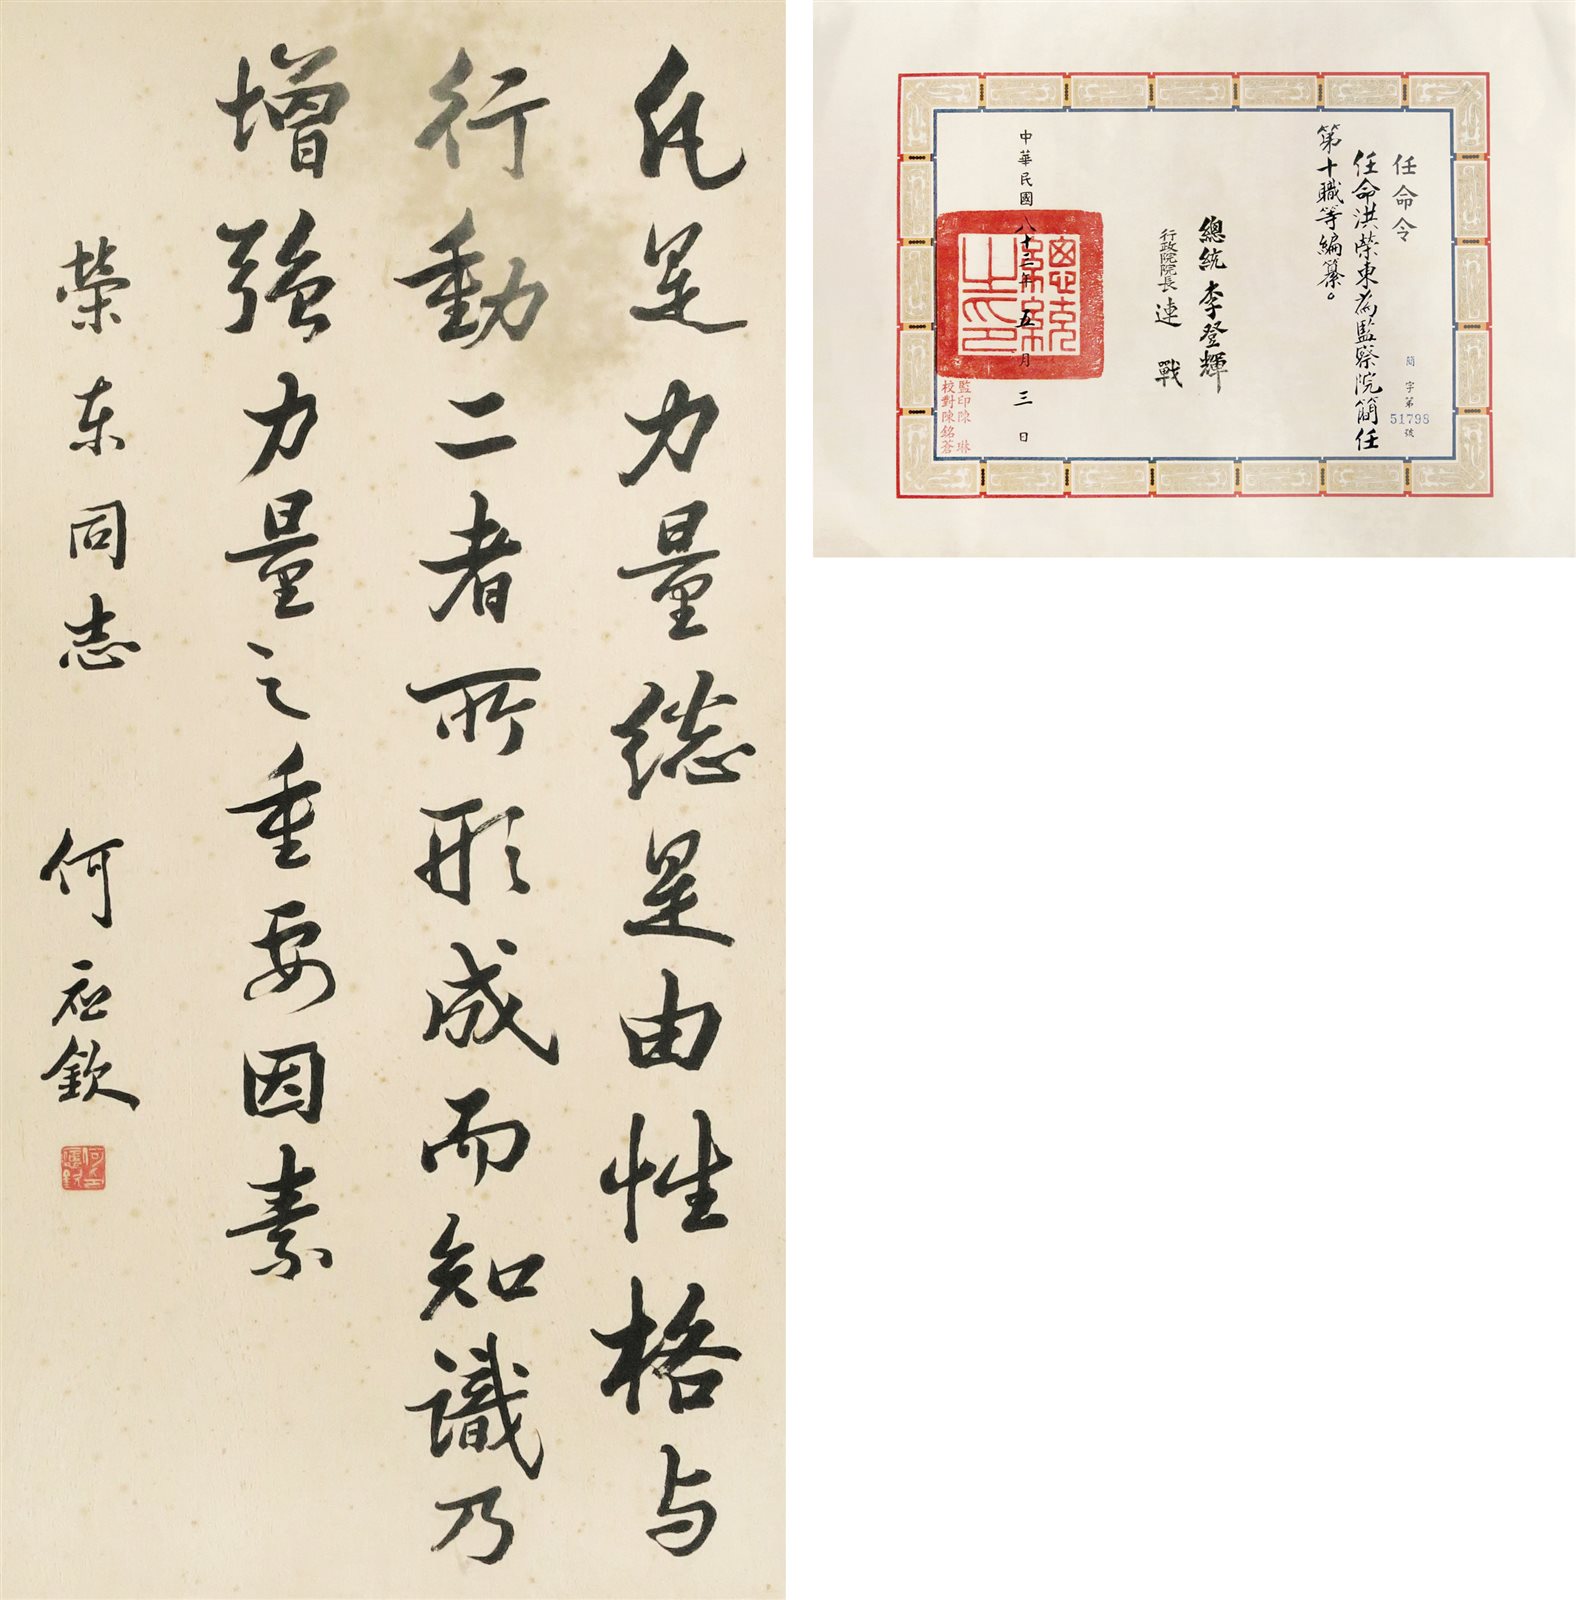 凡是力量総是由性格与
行動二者所形成而知識乃
增強力量之重要因素
榮东同志 何应欽
何應欽印
任命令
任命洪榮東為監察院簡任
第十職等編纂。
簡字第51798號
總統 李登輝
行政院院長 連戰
中華民國八十三年五月三日
總統之印
監印陳琳
校對陳銘蒼